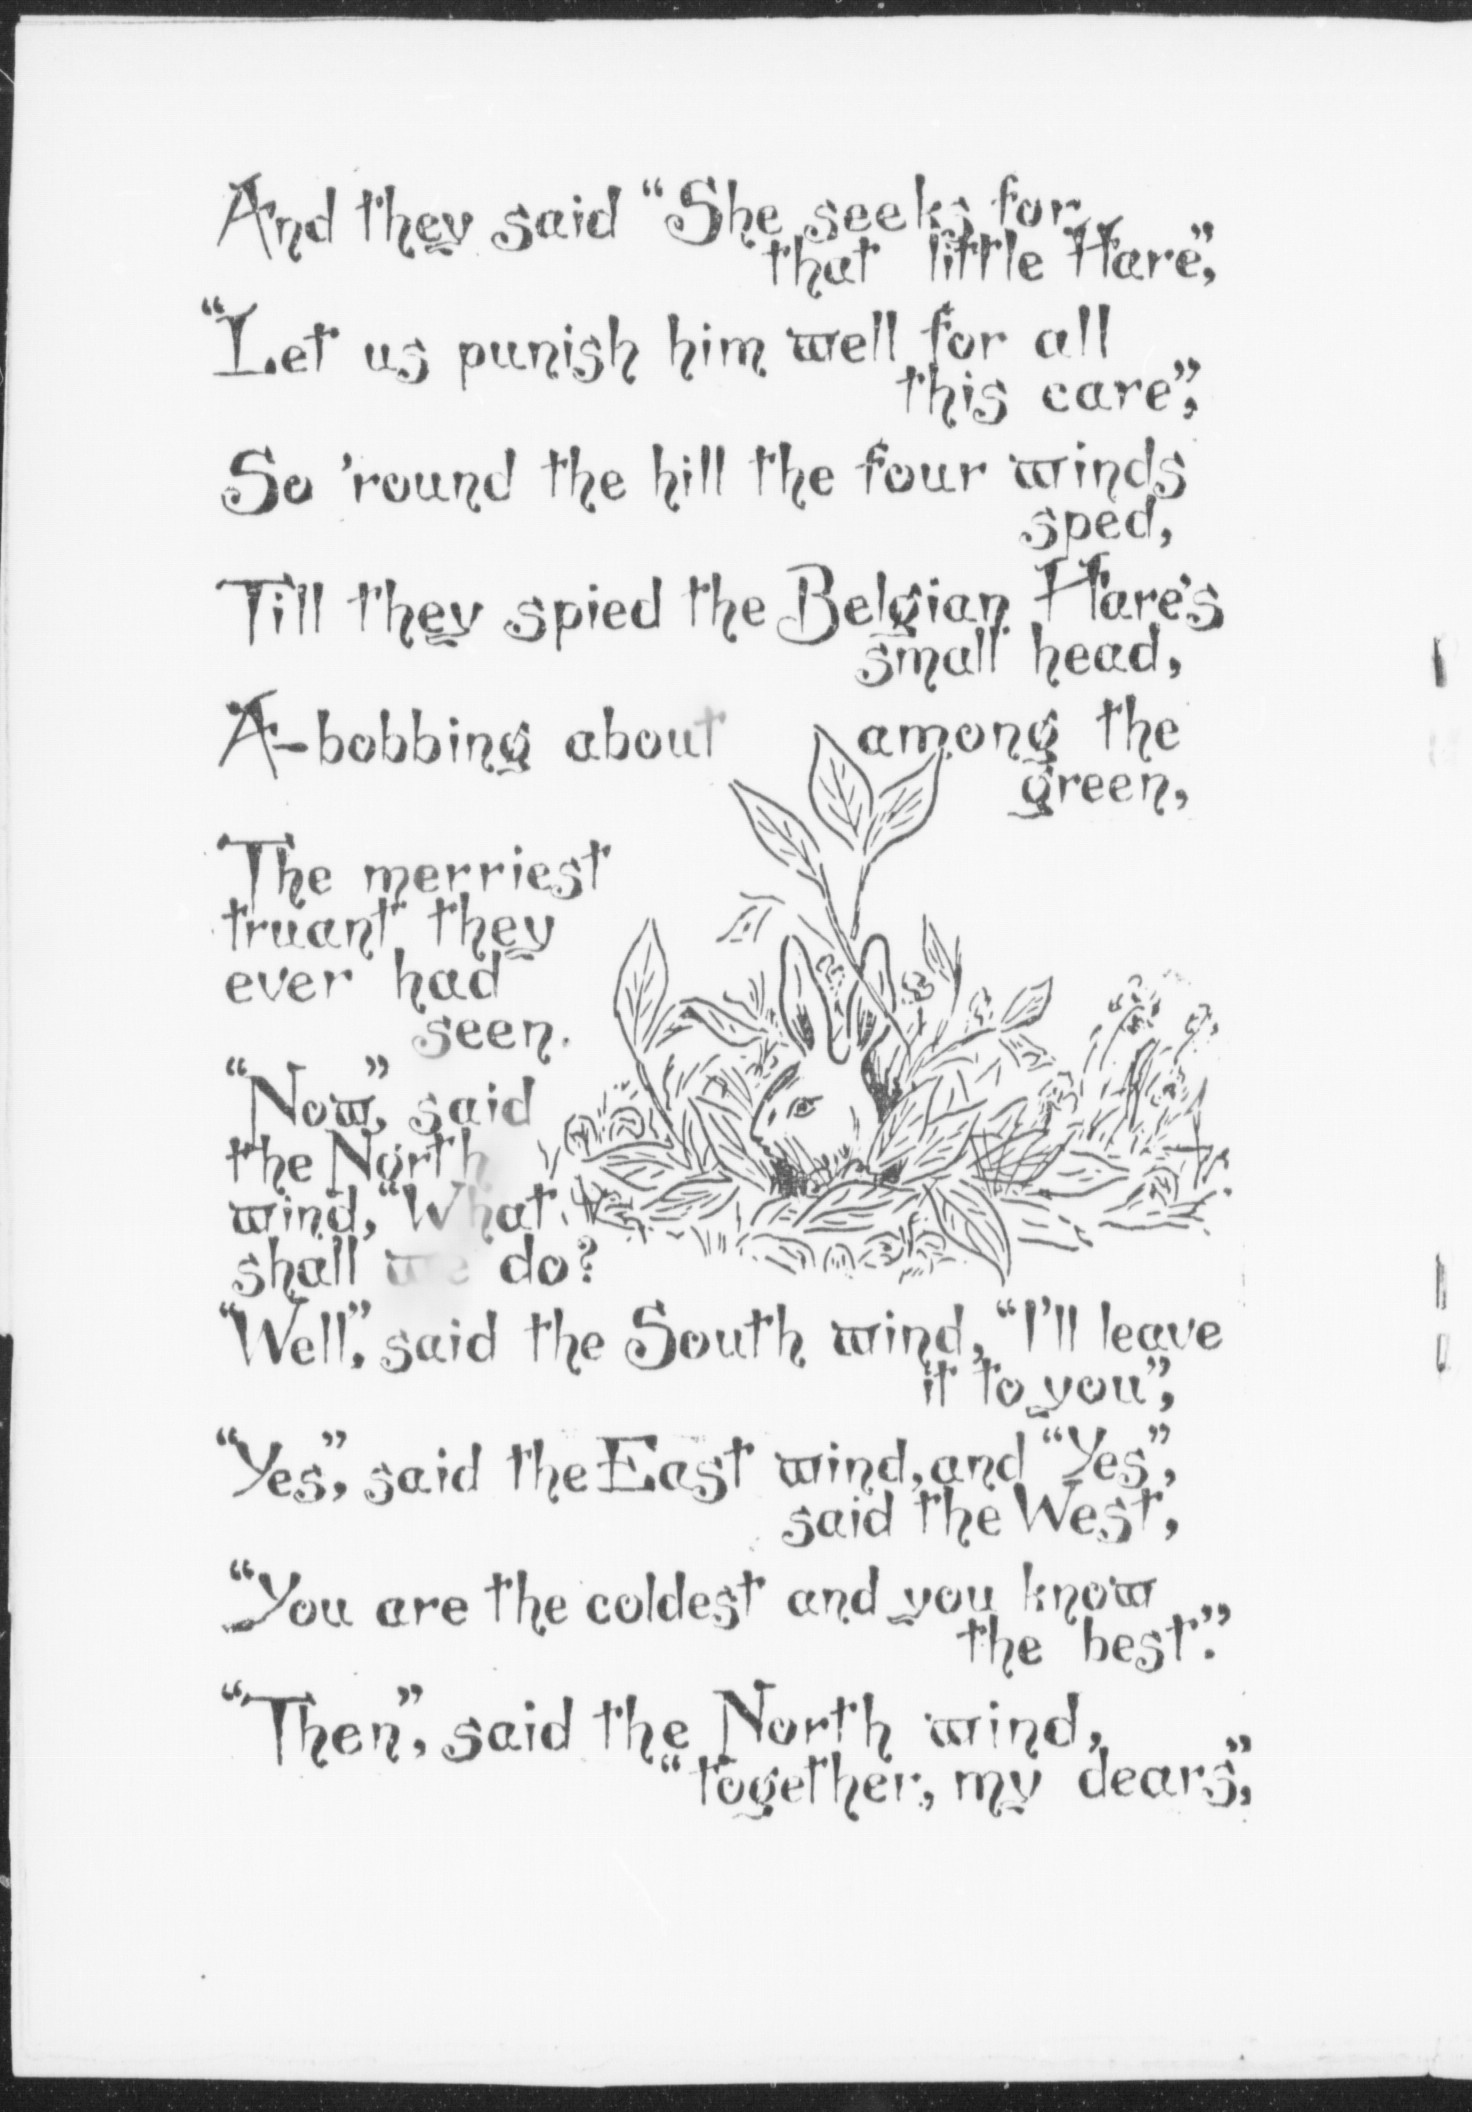 And they said “She seeks for
that little Hare”,
“Let us punish him well for all
this care”,
So ’round the hill the four winds
sped,
Till they spied the Belgian Hare’s
small head,
A-bobbing about among the
green,
The merriest
truant they
ever had
seen.
“Now”, said
the North
wind, “What
shall we do?
“Well”, said the South wind, “I’ll leave
it to you”,
“Yes”, said the East wind, and “Yes”,
said the West,
“You are the coldest and you know
the best”.
“Then”, said the North wind,
“together, my dears”,